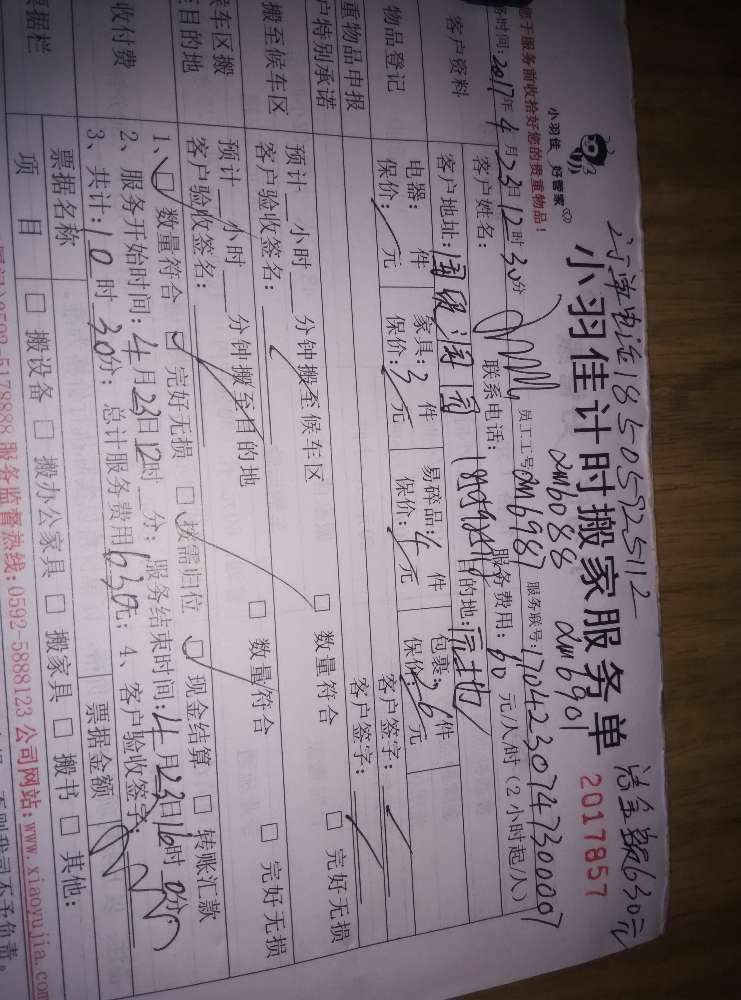 订单电话18505925112 总金额630元
小羽佳 好管家
小羽佳计时搬家服务单
2017857
于服务前收拾好您的贵重物品！
dm6088 dm6901
时间：2017年4月23日12时30分 员工工号dm6987 服务联号：170423074730007
客户资料
客户姓名： 联系电话： 服务费用：60元/人/时（2小时起/人）
客户地址： 目的地：
物品登记
电器： 件 家具：3件 易碎品：4件 包裹：26件
保价： 元 保价： 元 保价： 元 保价： 元
重物品申报 客户签字：
户特别承诺 客户签字：
搬至候车区
预计 小时 分钟搬至候车区 □ 数量符合 □ 完好无损
客户验收签名：
候车区搬
至目的地
预计 小时 分钟搬至目的地 □ 数量符合 □ 完好无损
客户验收签名：
收付费
1、□ 数量符合 □ 完好无损 □ 按需归位 □ 现金结算 □ 转账汇款
2、服务开始时间：4月23日12时 分；服务结束时间：4月23日16时0分；
3、共计：10时30分；总计服务费用630元；4、客户验收签字：
票据栏
票据名称 票据金额
项 目 □ 搬设备 □ 搬办公家具 □ 搬家具 □ 搬书 □ 其他：
服务监督热线：0592-5888123 公司网站：www.xiaoyujia.com
否则我司不予负责。